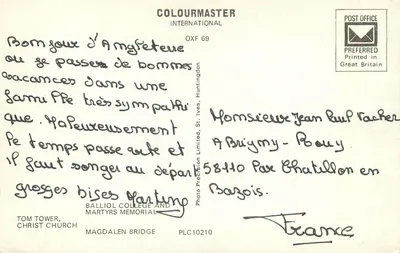 COLOURMASTER
INTERNATIONAL
OXF 69
POST OFFICE
PREFERRED
Printed in
Great Britain
Bonjour d'Angleterre
ou je passe de bonnes
vacances dans une
famille très sympathi
que. Malheureusement
le temps passe vite et
il faut songer au départ
grosses bises Martine
Photo Precision Limited, St. Ives, Huntingdon
Monsieur Jean Paul
A Brigny - Bouy
58110 Par Chatillon en
Bazois.
France
BALLIOL COLLEGE AND
MARTYRS MEMORIAL
TOM TOWER,
CHRIST CHURCH
MAGDALEN BRIDGE
PLC10210